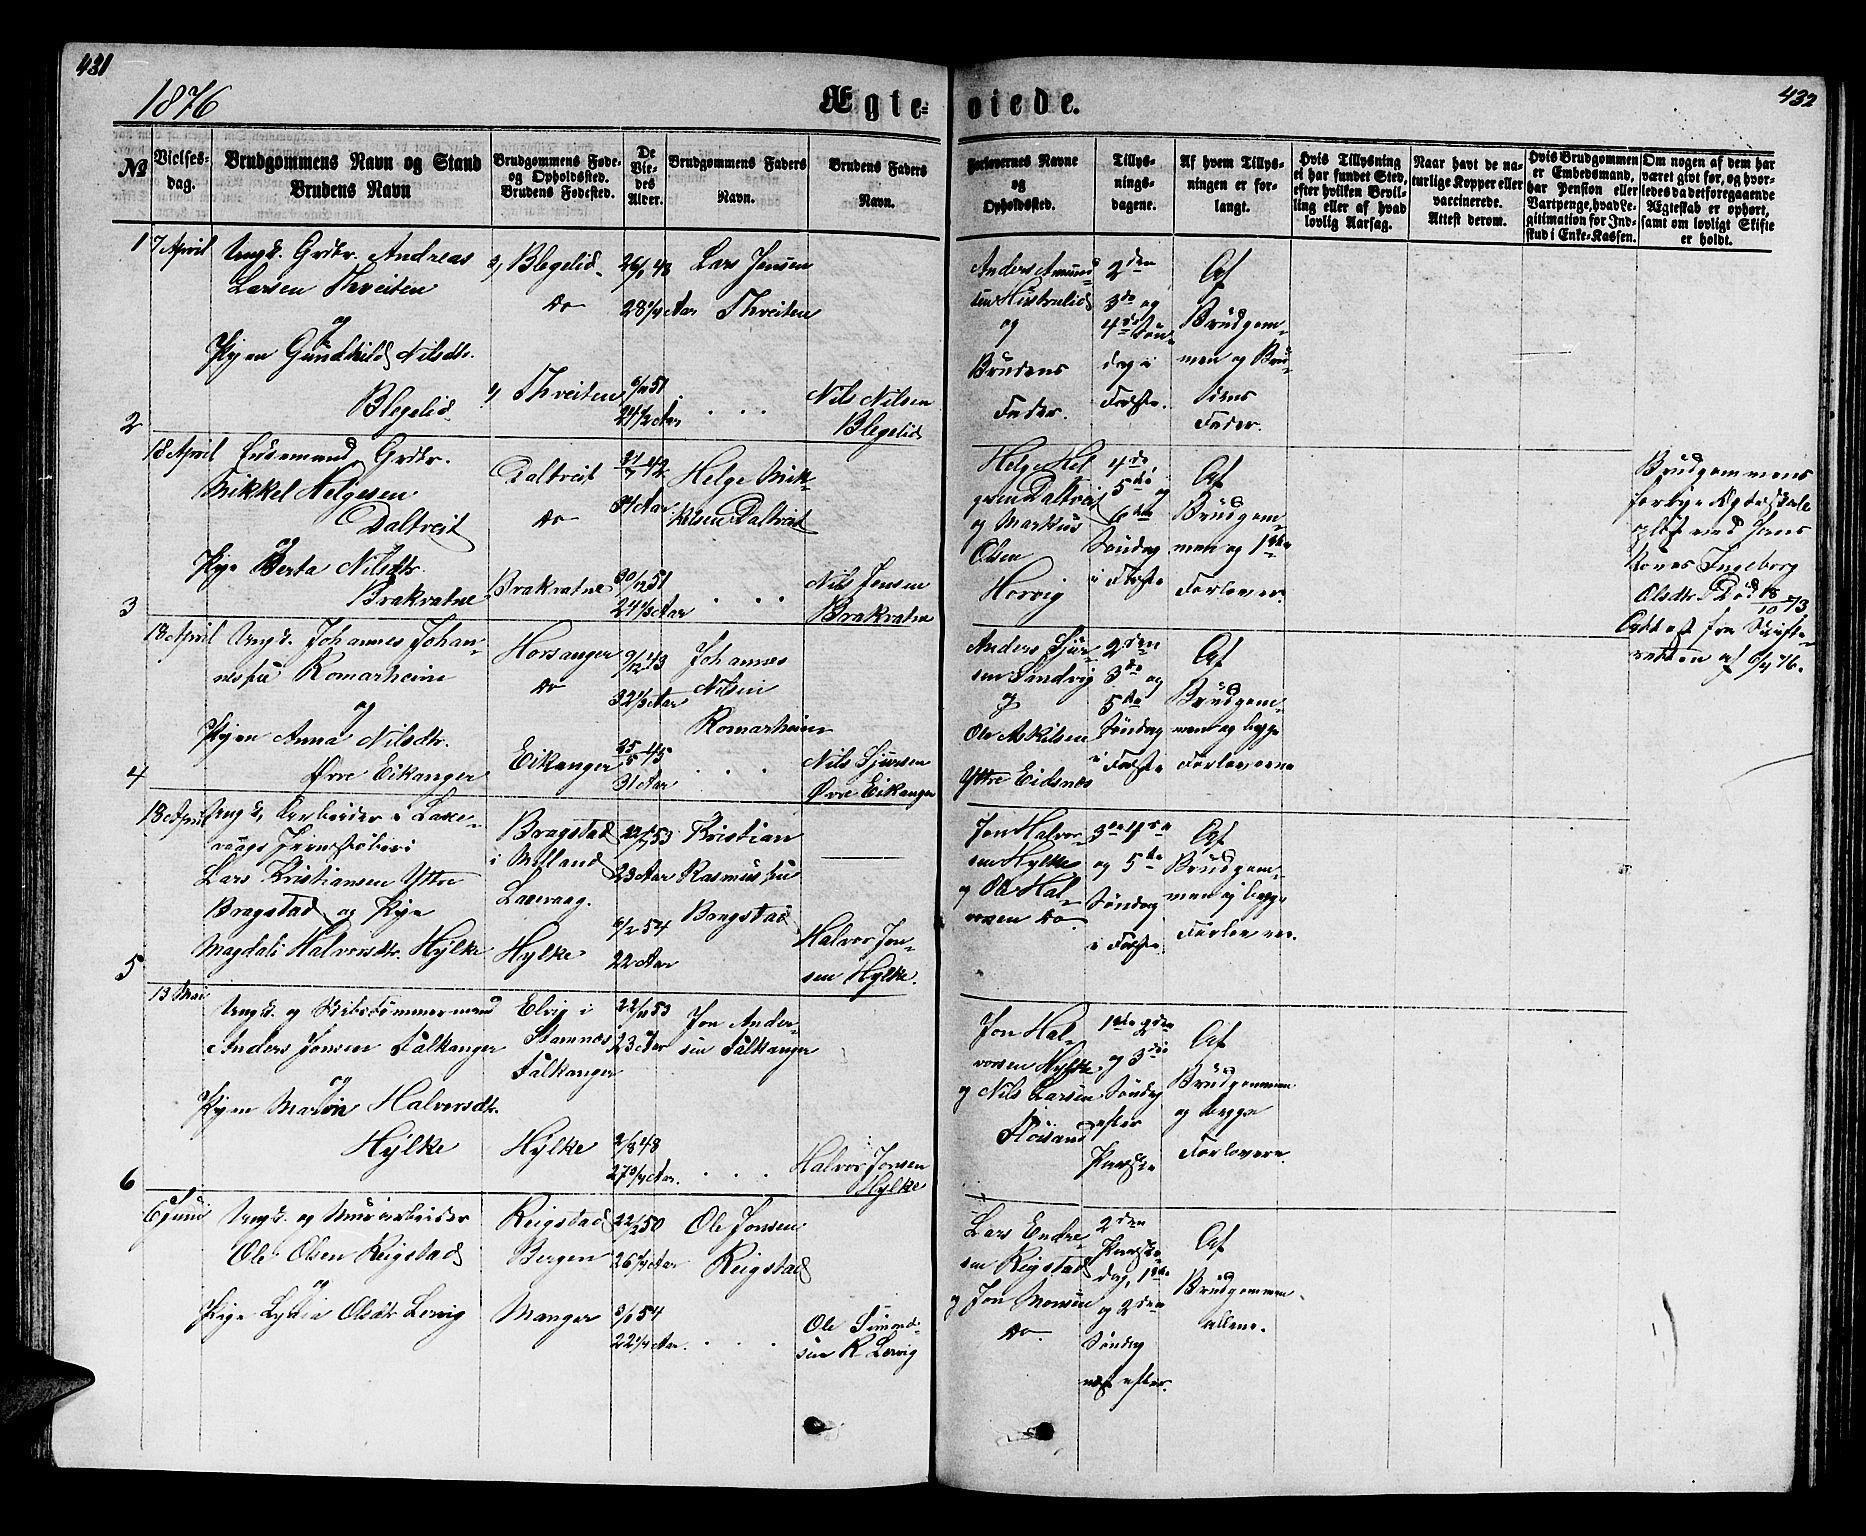 431
432
1876
Ægte-
viede.
№
Vielses-
dag.
Brudgommens Navn og Stand
Brudens Navn
Brudgommens Føde-
og Opholdssted.
Brudens Fødested.
De
Vie-
des
Alder.
Brudgommens Faders
Navn.
Brudens Faders
Navn.
Forlovernes Navne
og
Opholdssted.
Tillys-
nings-
dagene.
Af hvem Tillys-
ningen er for-
langt.
Hvis Tillysning
ei har fundet Sted,
efter hvilken Bevil-
ling eller af hvad
lovlig Aarsag.
Naar havt de na-
turlige Kopper eller
vaccinerede.
Attest derom.
Hvis Brudgommen
er Embedsmand,
har Pension eller
Vartpenge, hvad Le-
gitimation for Ind-
skud i Enke-Kassen.
Om nogen af dem har
været gift før, og hvor-
ledes da det foregaaende
Ægteskab er ophørt,
samt om lovligt Skifte
er holdt.
1
7 April
Ungk. Grdbr. Andreas
Larsen Thveiten
og
Pigen Gundhild Nilsdtr.
Blegelid
Blegelid
do
Thveiten
26/1 48
28 1/4 Aar
6/11 51
24 1/2 Aar
Lars Jensen
Thveiten
Nils Nilsen
Blegelid
Anders Amund-
sen
og
Brudens
Fader.
2den
3de og
4de Søn-
dag i
Faste.
Af
Brudgom-
men og Bru-
dens
Fader.
2
18 April
Enkemand Grdbr.
Mikkel Helgesen
Daltveit
og
Pige Berta Nilsdtr.
Brakvatne
Daltveit
do
Brakvatne
34 Aar
30/12 51
24 1/3 Aar
Helge Mik-
kelsen Daltveit
Nils Jensen
Brakvatne
Helge Hel-
gesen Daltveit
og Markus
Olsen
Hervig
4de,
5te og
6te
Søndag
i Faste
Af
Brudgom-
men og 1ste
Forlover.
Brudgommens
forrige Ægteskab
opløst ved hans
Kones Ingeborg
Olsdtr. Død 18/10 73
Attest fra Skifte-
retten af 6/4 76.
3
18 April
Ungk. Johannes Johan-
nesen Romarheim
og
Pigen Anna Nilsdtr.
Øvre Eikanger
Hosanger
do
Eikanger
9/12 43
32 1/3 Aar
25/5 45
31 Aar
Johannes
Nilsen
Romarheim
Nils Sjursen
Øvre Eikanger
Anders Sjur-
sen Sandvig
og
Ole Askilsen
Ytre Eidsnes
2den
3de og
5te
Søndag
i Faste
Af
Brudgom-
men og begge
Forlovere
4
18 April
Ungk. Arbeider i Laxe-
vaags Jernstøberi
Lars Kristiansen Yttre
Bragstad og Pige
Magdali Halvorsdtr. Hylke
Bragstad
Laxevaag.
Hylke
23 Aar
6/2 54
22 Aar
Kristian
Rasmussen
Bragstad
Halvor Jon-
sen Hylke.
Jon Halvor-
sen Hylke
og Ole Hal-
vorsen do
3die 4de
og 5te
Søndag
i Faste
Af
Brudgom-
men og begge
Forlovere.
5
13 Mai
Ungk. og Skibstømmermand
Anders Jonsen Falkanger
og
Pigen Marie Halvorsdtr.
Hylke
Elvig i
Stamnes
Falkanger
Hylke
22/11 53
2/8 48
27 3/4 Aar.
Jon Ander-
sen Falkanger
Halvor Jonsen
Hylke
Jon Hal-
vorsen Hylke
og Nils Larsen
Fløisand
1ste 2den
og 3die
Søndag
efter
Paaske
Af
Brudgommen
og begge
Forlovere.
6
6 Juni
Ungk. og Murarbeider
Ole Olsen Reigstad
og
Pige Lydia Olsdtr. Lervig
Reigstad
Bergen
Manger
22/2 50
26 1/4 Aar
3/1 54
22 1/4 Aar.
Ole Jonsen
Reigstad
Ole Simond-
sen R Lervig
Lars Endre-
sen Reigstad
og Jon Monsen
do.
2den
Paaske-
dag, 1ste
og 2den
Søndag
næst efter.
Af
Brudgommen
allene.